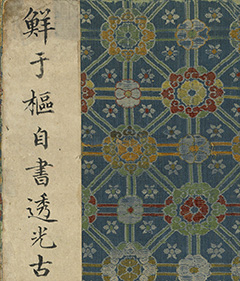 鮮于樞自書透光古